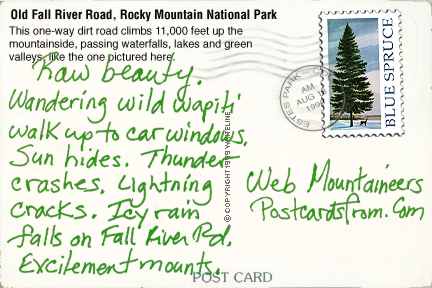 Old Fall River Road, Rocky Mountain National Park
This one-way dirt road climbs 11,000 feet up the
mountainside, passing waterfalls, lakes and green
valleys, like the one pictured here.
Raw beauty.
Wandering wild wapiti
walk up to car windows.
Sun hides. Thunder
crashes. Lightning
cracks. Icy rain
falls on Fall River Rd.
Excitement mounts.
© COPYRIGHT 1999
ESTES PARK
AM
AUG
BLUE SPRUCE
Web Mountaineers
Postcardsfrom.Com
POST CARD